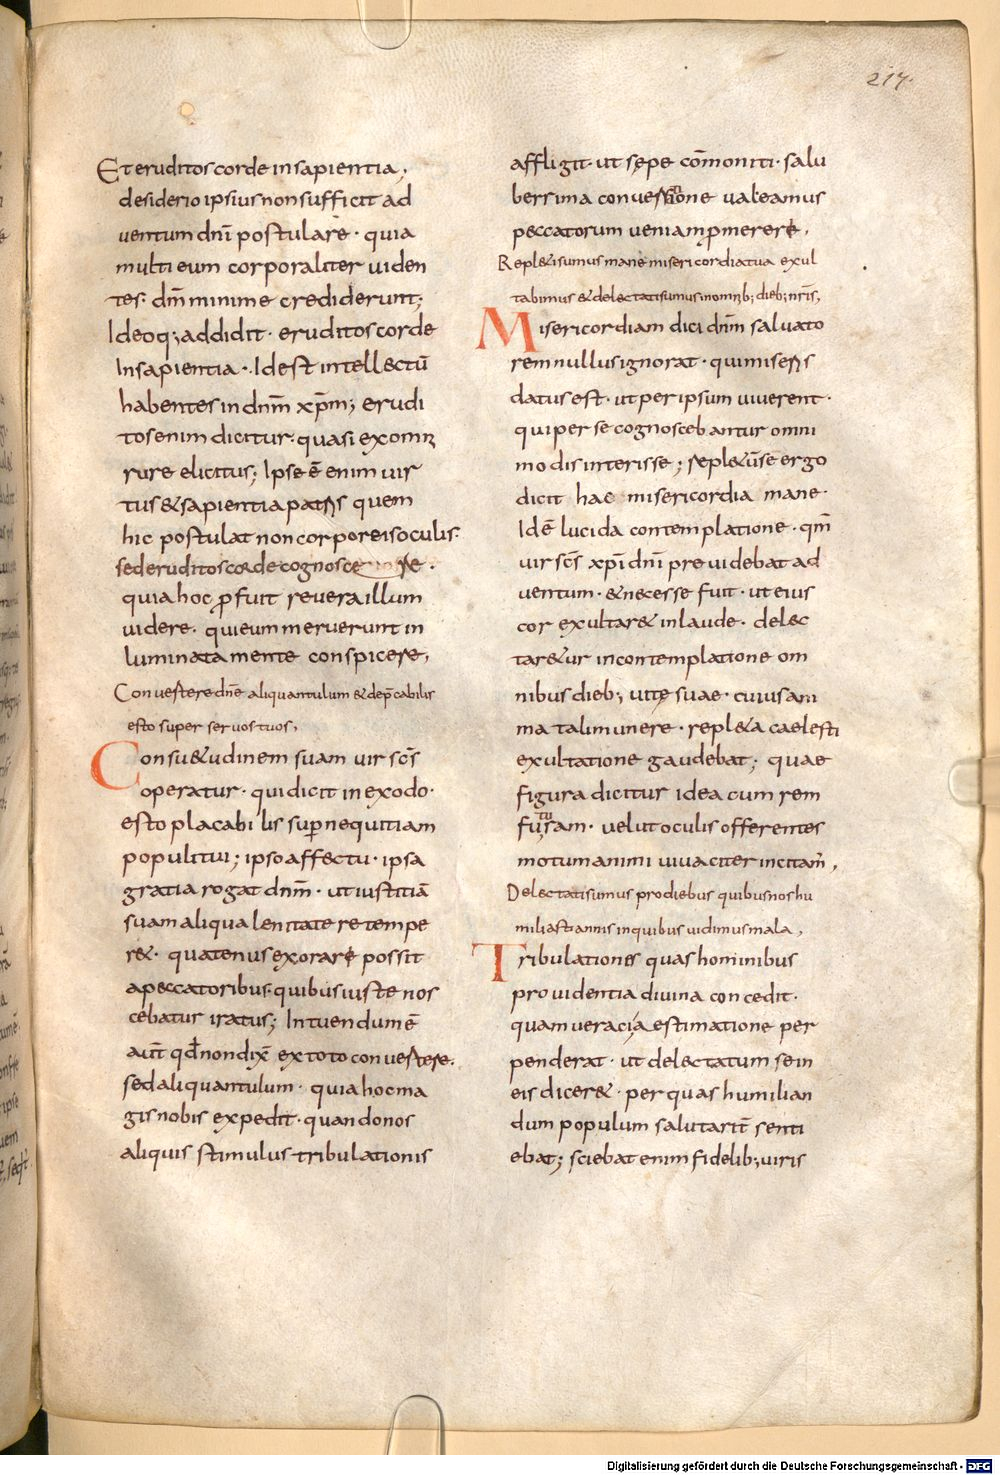 217.
Et eruditos corde in sapientia,
desiderio ipsius non sufficit ad
uentum dn̄i postulare · quia
multi eum corporaliter uiden
tes · dn̄m minime crediderunt;
Ideoq; addidit · eruditos corde
In sapientia · Id est intellectū
habentes in dn̄m xp̄m; erudi
tos enim dicitur · quasi ex omni
rure elicitus; Ipse ē enim uir
tus & sapientia patris quem
hic postulat non corporeis oculis ·
sed eruditos corde cognoscere ·
quia hoc ꝓfuit reuera illum
uidere · qui eum meruerunt in
luminata mente conspicere,
Conuertere dn̄e aliquantulum & dep̄cabilis
esto super seruos tuos,
Consu&udinem suam uir sc̄s
operatur · qui dicit in exodo ·
esto placabilis suꝑ nequitiam
populi tui; ipso affectu · ipsa
gratia rogat dn̄m · ut iustitiā
suam aliqua lenitate retempe
r& · quatenus exorare possit
a peccatoribus · quibus iuste nos
cebatur iratus; Intuendum ē
aut̄ qd̄ non dix̄ ex toto conuertere ·
sed aliquantulum · quia hoc ma
gis nobis expedit · quando nos
aliquis stimulus tribulationis
affligit · ut sepe cōmoniti · salu
berrima conuersione ualeamus
peccatorum ueniam ꝓmerere,
Repl&i sumus mane misericordia tua exul
tabimus & delectati sumus in omnib; dieb; nr̄is,
Misericordiam dici dn̄m saluato
rem nullus ignorat · qui miseris
datus est · ut per ipsum uiuerent ·
qui per se cognoscebantur omni
modis interisse; repl&ū se ergo
dicit hac misericordia mane ·
Id ē lucida contemplatione · qm̄
uir sc̄s xp̄i dn̄i preuidebat ad
uentum · & necesse fuit · ut eius
cor exultar& in laude · delec
tar&ur in contemplatione om
nibus dieb; uitę suae · cuius ani
ma tali munere · repl&a caelesti
exultatione gaudebat; quae
figura dicitur idea cum rem
futuram · uelut oculis offerentes
motum animi uiuaciter incitam̄,
Delectati sumus pro diebus quibus nos hu
miliasti annis in quibus uidimus mala,
Tribulationes quas hominibus
prouidentia diuina concedit ·
quam ueracia estimatione per
penderat · ut delectatum se in
eis dicer& · per quas humilian
dum populum salutarit̄ senti
ebat; sciebat enim fidelib; uiris
Digitalisierung gefördert durch die Deutsche Forschungsgemeinschaft - DFG